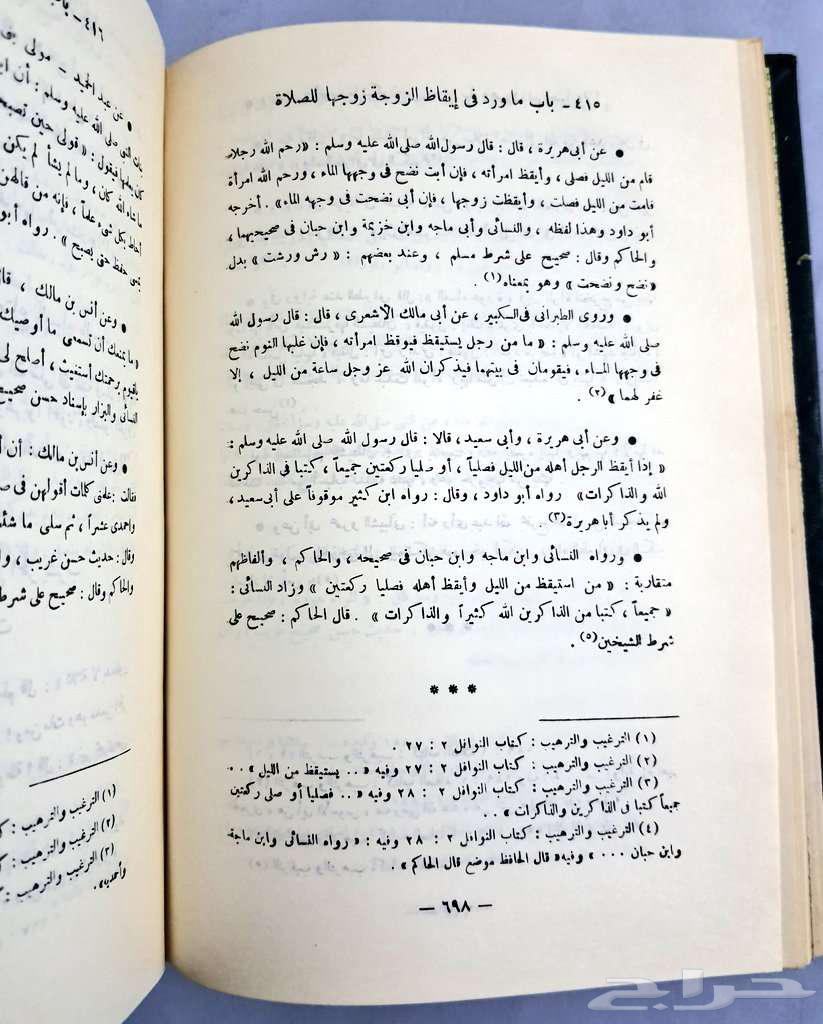 ٤١٥ - باب ما ورد في إيقاظ الزوجة زوجها للصلاة
● عن أبي هريرة ، قال : قال رسول الله صلى الله عليه وسلم : «رحم الله رجلا
قام من الليل فصلى ، وأيقظ امرأته ، فإن أبت نضح في وجهها الماء ، ورحم الله امرأة
قامت من الليل فصلت ، وأيقظت زوجها ، فإن أبى نضحت في وجهه الماء» . أخرجه
أبو داود وهذا لفظه ، والنسائى وأبى ماجه وابن خزيمة وابن حبان في صحيحيهما ،
والحاكم وقال : صحيح على شرط مسلم ، وعند بعضهم : « رش ورشت » بدل
«نضح ونضحت » وهو بمعناه(١) .
● وروى الطبرانى فى الكبير ، عن أبى مالك الأشعرى ، قال : قال رسول الله
صلى الله عليه وسلم : « ما من رجل يستيقظ فيوقظ امرأته ، فإن غلبها النوم نضح
فى وجهها الماء ، فيقومان فى بيتهما فيذكران الله عز وجل ساعة من الليل ، إلا
غفر لهما »(٢) .
● وعن أبى هريرة ، وأبى سعيد ، قالا : قال رسول الله صلى الله عليه وسلم :
« إذا أيقظ الرجل أهله من الليل فصليا ، أو صليا ركعتين جميعاً ، كتبا فى الذاكرين
الله والذاكرات » رواه أبو داود ، وقال : رواه ابن كثير موقوفاً على أبى سعيد ،
ولم يذكر أبا هريرة(٣) .
● ورواه النسائى وابن ماجه وابن حبان فى صحيحه ، والحاكم ، وألفاظهم
متقاربة : « من استيقظ من الليل وأيقظ أهله فصليا ركعتين » وزاد النسائى :
« جميعاً ، كتبا من الذاكرين الله كثيراً والذاكرات » . قال الحاكم : صحيح على
شرط للشيخين(٥) .
* * *
(١) الترغيب والترهيب : كتاب النوافل ٢ : ٢٧ .
(٢) الترغيب والترهيب : كتاب النوافل ٢ : ٢٧ وفيه « .. يستيقظ من الليل » ..
(٣) الترغيب والترهيب : كتاب النوافل ٢ : ٢٨ وفيه « .. فصليا أو صلى ركعتين
جميعاً كتبا فى الذاكرين والذاكرات » ..
(٤) الترغيب والترهيب : كتاب النوافل ٢ : ٢٨ وفيه : « رواه النسائى وابن ماجة
وابن حبان ... » وفيه« قال الحافظ موضع قال الحاكم » .
— ٦٩٨ —
٤١٦ -
● عن عبد الحميد - مولى
النبى صلى الله عليه وسلم : أن
فيقول : « قولى حين
ما شاء الله كان ، وما لم يشأ لم يكن
أحاط بكل شىء علماً ، فإنه من قالهن
حفظ حتى يصبح » . رواه أبو
● وعن أنس بن مالك ، قال
« ما يمنعك أن تسمعى ما أوصيك
يا قيوم برحمتك أستغيث ، أصلح لى
النسائى والبزار بإسناد حسن صحيح
● وعن أنس بن مالك : أن
فقالت : علمنى كلمات أقولهن فى
واحمدى عشراً ، ثم سلى ما
وقال : حديث حسن غريب ،
والحاكم وقال : صحيح على شرط
(١) الترغيب والترهيب :
(٢) الترغيب والترهيب :
(٣) الترغيب والترهيب :
وأحمد» .
حراج